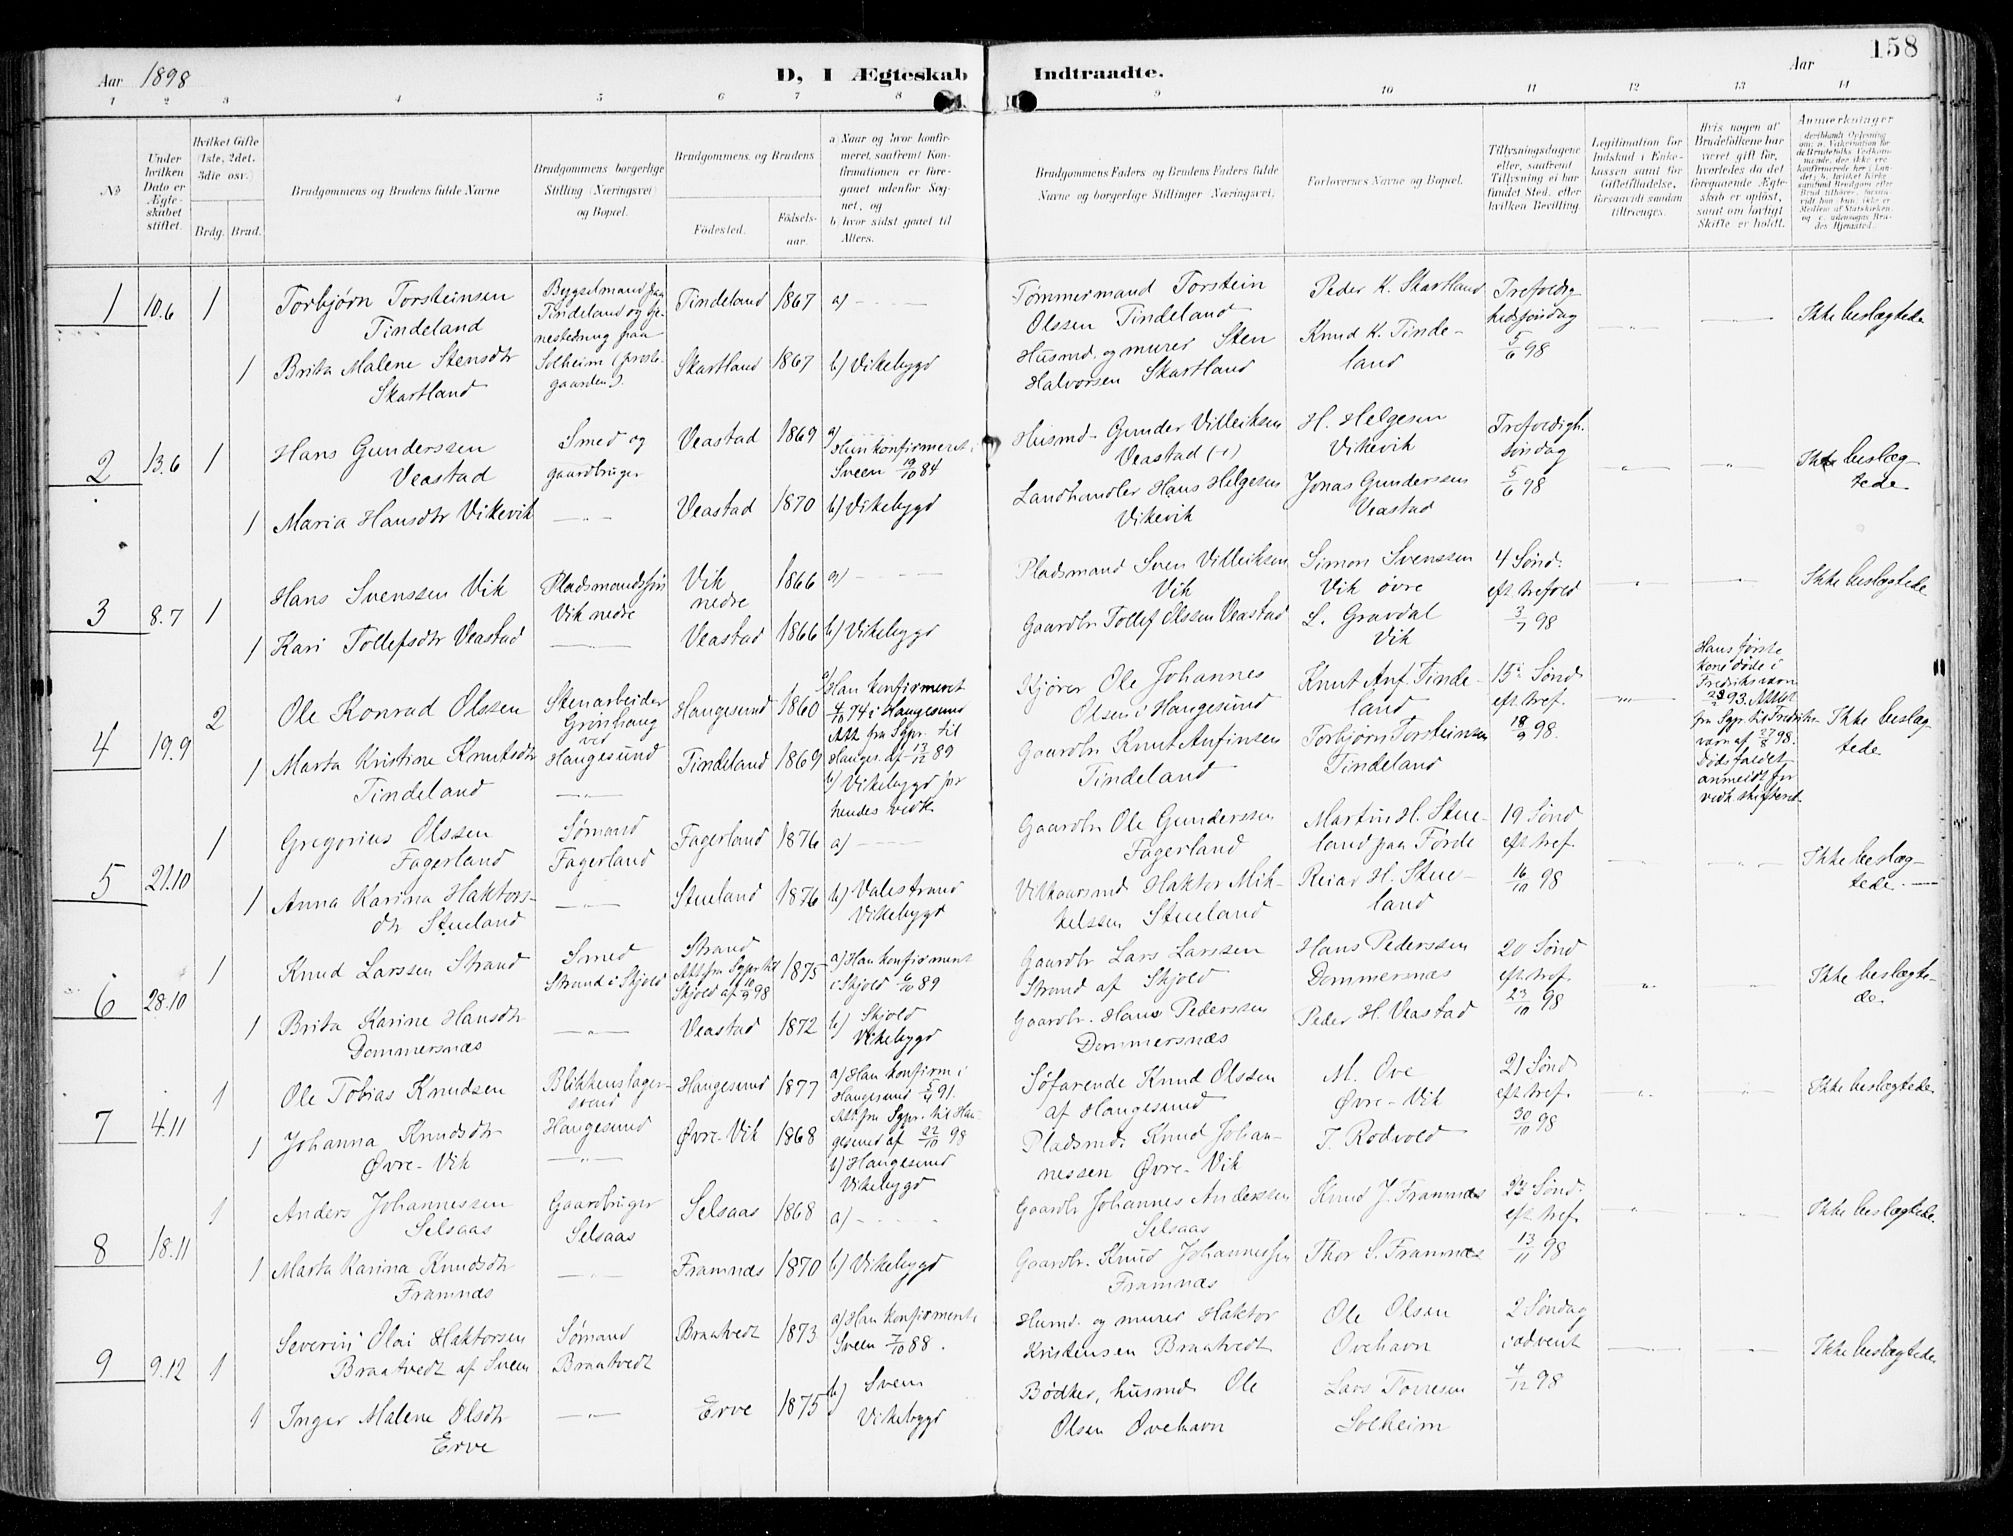 158
Aar 1898
D, I Ægteskab Indtraadte.
Aar
1 2 3 4 5 6 7 8 9 10 11 12 13 14
No
Under hvilken Dato er Ægteskabet stiftet.
Hvilket Gifte (1ste, 2det, 3die osv.)
Brdg. Brud.
Brudgommens og Brudens fulde Navne
Brudgommens borgerlige Stilling (Næringsvei) og Bopæl.
Brudgommens og Brudens
Fødested.
Fødselsaar.
a) Naar og hvor konfirmeret, saafremt Konfirmationen er foregaaet udenfor Sognet, og
b) hvor sidst gaaet til Alters.
Brudgommens Faders og Brudens Faders fulde Navne og borgerlige Stillinger (Næringsvei.
Forlovernes Navne og Bopæl.
Tillysningsdagene eller, saafremt Tillysning ei har fundet Sted, efter hvilken Bevilling
Legitimation for Indskud i Enkekassen samt for Giftetilladelse, forsaavidt saadan tiltrænges.
Hvis nogen af Brudefolkene har været gift før, hvorledes da det foregaaende Ægteskab er opløst, samt om lovligt Skifte er holdt.
Anmerkninger
1
10.6
1
Torbjørn Torsteinsen
Tindeland
Bygselmand paa
Tindeland og
Tindeland
1867
a) – – –
Tømmermand Torstein
Olssen Tindeland
Peder K. Skartland
Trefoldig
hedssøndag
5/6 98
Ikke beslægtede
1
Brita Malene Stensdtr
Skartland
Solheim (præste-
gaarden).
Skartland
1867
b) Vikebygd
Husmd. og murer Sten
Halvorsen Skartland
Knud K. Tinde-
land
2
13.6
1
Hans Gunderssen
Veastad
Smed og
gaardbruger
Veastad
1869
a)
Hun konfirmeret i
Sveen 19/10 84
Husmd. Gunder Villeiksen
Veastad (+)
H. Helgesen
Vikevik
Trefoldigh.
søndag
5/6 98
Ikke beslæg-
tede
1
Maria Hansdtr Vikevik
— " —
Veastad
1870
b) Vikebygd
Landhandler Hans Helgesen
Vikevik
Jonas Gunderssen
Veastad
3
8.7
1
Hans Svenssen Vik
Pladsmandssøn
Vik nedre
Vik
nedre
1866
a) – – –
Pladsmand Sven Villeiksen
Vik
Simon Svenssen
Vik øvre
4 Sønd.
eft trefold
3/7 98
Ikke beslægtede
1
Kari Tollefsdtr Veastad
Veastad
1866
b) Vikebygd
Gaardbr Tollef Olssen Veastad
L. Gravdal
Vik
4
19.9
2
Ole Konrad Olssen
Stenarbeider
Grønhaug
ved
Haugesund
Haugesund
1860
a) Han konfirmeret
4/10 74 i Haugesund
Att. fra Sgpr. til
Hauges. af 13/12 89
Kjører Ole Johannes
Olsen i Haugesund
Knut Anf. Tinde-
land
15de Sønd
eft tref.
18/9 98.
Hans første
kone døde i
Fredriksværn
93. Attest
fra Sgpr. til Fredriks-
værn af 27/8 98.
Dødsfaldet
anmeldt for
vedk. skifteret
Ikke beslæg-
tede
1
Marta Kristine Knutsdtr
Tindeland
— " —
Tindeland
1869
b) Vikebygd for
hendes vedk.
Gaardbr Knut Anfinsen
Tindeland
Torbjørn Torsteinsen
Tindeland
5
21.10
1
Gregorius Olssen
Fagerland
Sømand
Fagerland
Fagerland
1876
a) – – –
Gaardbr Ole Gunderssen
Fagerland
Martin H. Stue-
land paa Førde
19 Sønd
eft tref.
16/10 98
Ikke beslæg-
tede.
1
Anna Karina Haktors-
dtr Stueland
— " —
Stueland
1876
b) Valestrand
Vikebygd
Vilkaarsmd Haktor Mik-
kelssen Stueland
Reiar H. Stue-
land
6
28.10
1
Knud Larssen Strand
Smed
Strand i Skjold
Strand
Att fra Sgpr til
Skjold af 10/9 98
1875
a) Han konfirment
i Skjold 6/10 89
Gaardbr Lars Larssen
Strand af Skjold
Hans Pederssen
Dommersnæs
20 Sønd
eft. tref.
23/10 98
Ikke beslægte-
de.
1
Brita Karine Hansdtr
Dommersnæs
— " —
Veastad
1872
b) Skjold
Vikebygd
Gaardbr. Hans Pederssen
Dommersnæs
Peder H. Veastad
7
4.11
1
Ole Tobias Knudsen
Blikkenslager-
svend
Haugesund
Haugesund
1877
a) Han konfirm i
Haugesund 5/4 91.
Att fra Sgpr. til Hau-
gesund af 22/10 98
Søfarende Knud Olssen
af Haugesund
M. Ove
Øvre-Vik
21 Sønd
eft tref.
30/10 98
Ikke beslægtede
1
Johanna Knudsdtr
Øvre-Vik
— " —
Øvre-Vik
1868
b) Haugesund
Vikebygd
Pladsmd. Knud Johan-
nessen Øvre-Vik
T. Rødvold
8
18.11
1
Anders Johannessen
Selsaas
Gaardbruger
Selsaas
Selsaas
1868
a) – – –
Gaardbr Johannes Anderssen
Selsaas
Knud J. Framnæs
23 Sønd.
eft. tref.
13/11 98
Ikke beslægtede.
1
Marta Karina Knudsdtr
Framnæs
— " —
Framnæs
1870
b) Vikebygd
Gaardbr. Knud Johannessen
Framnæs
Thor S. Framnæs
9
9.12
1
Severin Olai Haktorsen
Braatvedt af Sveen
Sømand
Braatvedt
Braatvedt
1873
a) Han konfirment i
Sveen 7/10 88.
Husmd. og murer Haktor
Kristensen Braatvedt
Ole Olsen
Ovehavn
2 Søndag
i advent
4/12 98
Ikke beslægtede
1
Inger Malene Olsdtr
Erve
— " —
Erve
1875
b) Sveen
Vikebygd
Bødker, husmd. Ole
Olsen Ovehavn
Lars Torresen
Solheim